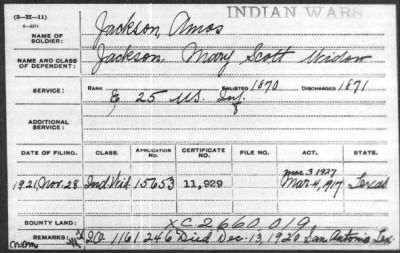 INDIAN WARS
(3-31-11)
NAME OF SOLDIER: Jackson, Amos
NAME AND CLASS OF DEPENDENT: Jackson, Mary Scott Widow
SERVICE: RANK ENLISTED 1870 DISCHARGED 1871
E 25 U.S. Inf.
ADDITIONAL SERVICE:
DATE OF FILING. CLASS. APPLICATION NO. CERTIFICATE NO. FILE NO. ACT. STATE.
mar. 3 1927
1921, Nov. 28 Ind. Wid. 15653 11,929 Mar. 4, 1917 Texas
BOUNTY LAND: XC2660019
REMARKS: 1161246 Died Dec. 13, 1920 San Antonio Tex.